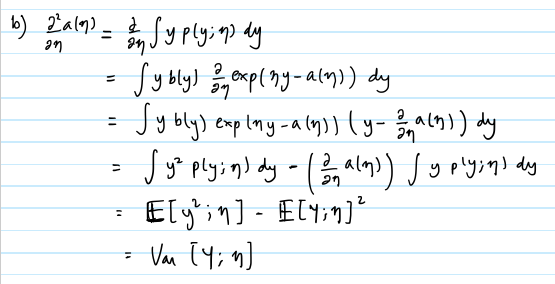 b) ∂²a(η)/∂η = ∂/∂η ∫ y p(y; η) dy
= ∫ y b(y) ∂/∂η exp(ηy - a(η)) dy
= ∫ y b(y) exp(ηy - a(η)) (y - ∂/∂η a(η)) dy
= ∫ y² p(y; η) dy - (∂/∂η a(η)) ∫ y p(y; η) dy
= 𝔼[y²; η] - 𝔼[Y; η]²
= Var [Y; η]